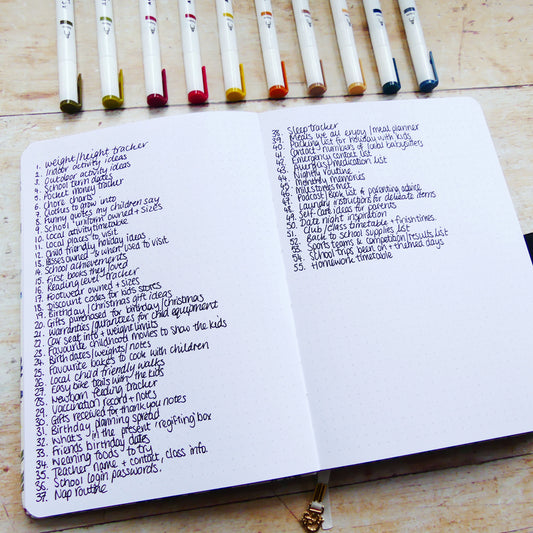 1. Weight/height tracker
2. Indoor activity ideas
3. Outdoor activity ideas
4. School term dates
5. Pocket money tracker
6. Chore charts
7. Clothes to grow into
8. Funny quotes my children say
9. School uniform owned + sizes
10. Local activity timetable
11. Local places to visit
12. Child friendly holiday ideas
13. Passes owned + when used to visit
14. School achievements
15. First books they loved
16. Reading level tracker
17. Footwear owned + sizes
18. Discount codes for kids stores
19. Birthday/christmas gift ideas
20. Gifts purchased for birthday/christmas
21. Warranties/guarantees for child equipment
22. Car seat info + weight limits
23. Favourite childhood movies to show the kids
24. Birth dates/weights/notes
25. Favourite bakes to cook with children
26. Local child friendly walks
27. Easy bike trails with the kids
28. Newborn feeding tracker
29. Vaccination record + notes
30. Gifts received for thank you notes
31. Birthday planning spread
32. What's in the present/regifting box
33. Friends birthday dates
34. Weaning foods to try
35. Teacher name + contact, class info.
36. School login passwords.
37. Nap routine
38. Sleep tracker
39. Meals we all enjoy/meal planner
40. Packing list for holiday with kids
41. Contact numbers of local babysitters
42. Emergency contact list
43. Allergies/medication list
44. Nightly routine
45. Monthly memories
46. Milestones met
47. Podcast/Book list + parenting advice
48. Laundry instructions for delicate items
49. Self-care ideas for parents
50. Date night inspiration
51. Club/class timetable + finish times.
52. Back to school supplies list
53. Sports teams & competition/results list
54. School trips been on + themed days
55. Homework timetable